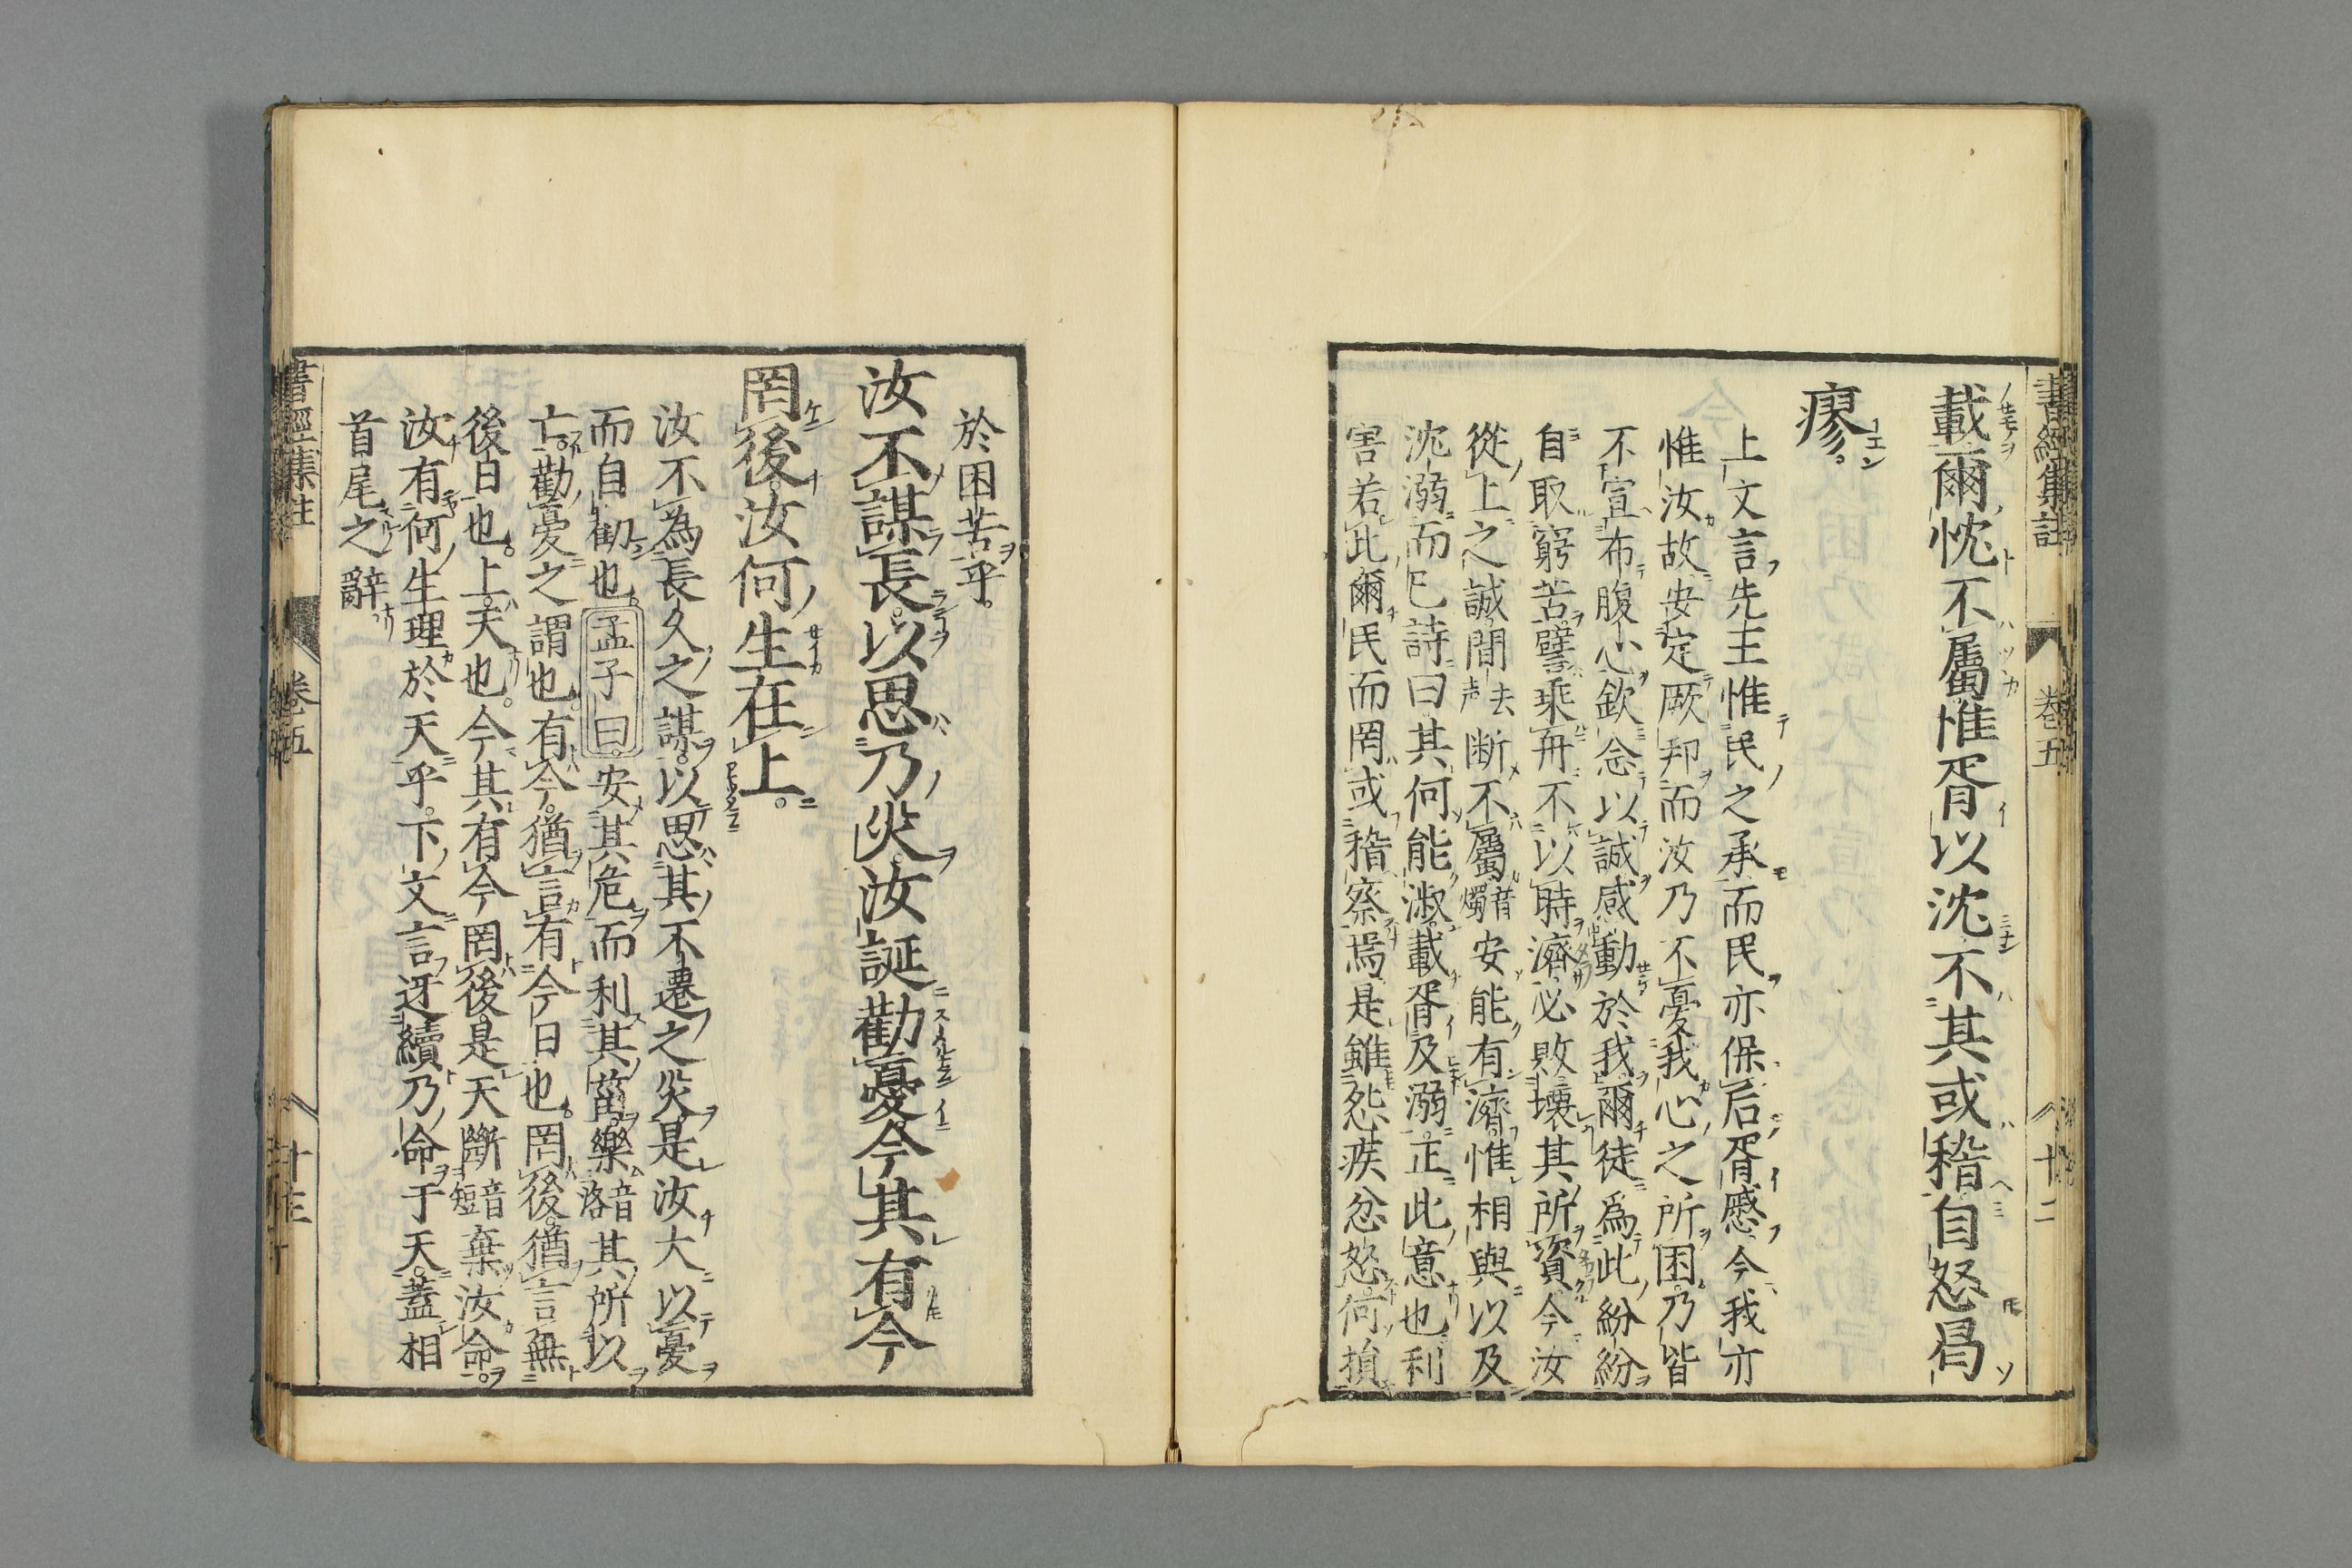 書經集註 卷五 十二
載爾忱不屬惟胥以沈不其或稽自怒曷
瘳。
上文言先王惟民之承而民亦保后胥慼今我亦
惟汝故安定厥邦而汝乃不憂我心之所困乃皆
不宣布腹心欽念以誠感動於我爾徒爲此紛紛
自取窮苦譬乘舟不以時濟必敗壞其所資今汝
從上之誠間去声断不屬音燭安能有濟惟相與以及
沈溺而已詩曰其何能淑載胥及溺正此意也利
害若此爾民而罔或稽察焉是雖怨疾忿怒何損
於困苦乎。
汝不謀長以思乃災汝誕勸憂今其有今
罔後汝何生在上。
汝不為長久之謀。以思其不遷之災是汝大以憂
而自勸也。孟子曰。安其危而利其菑。樂音洛其所以
亡。勸憂之謂也。有今。猶言有今日也。罔後。猶言無
後日也。上。天也。今其有今罔後。是天斷音短棄汝命。
汝有何生理於天乎。下文言迓續乃命于天。蓋相
首尾之辭
書經集註 卷五